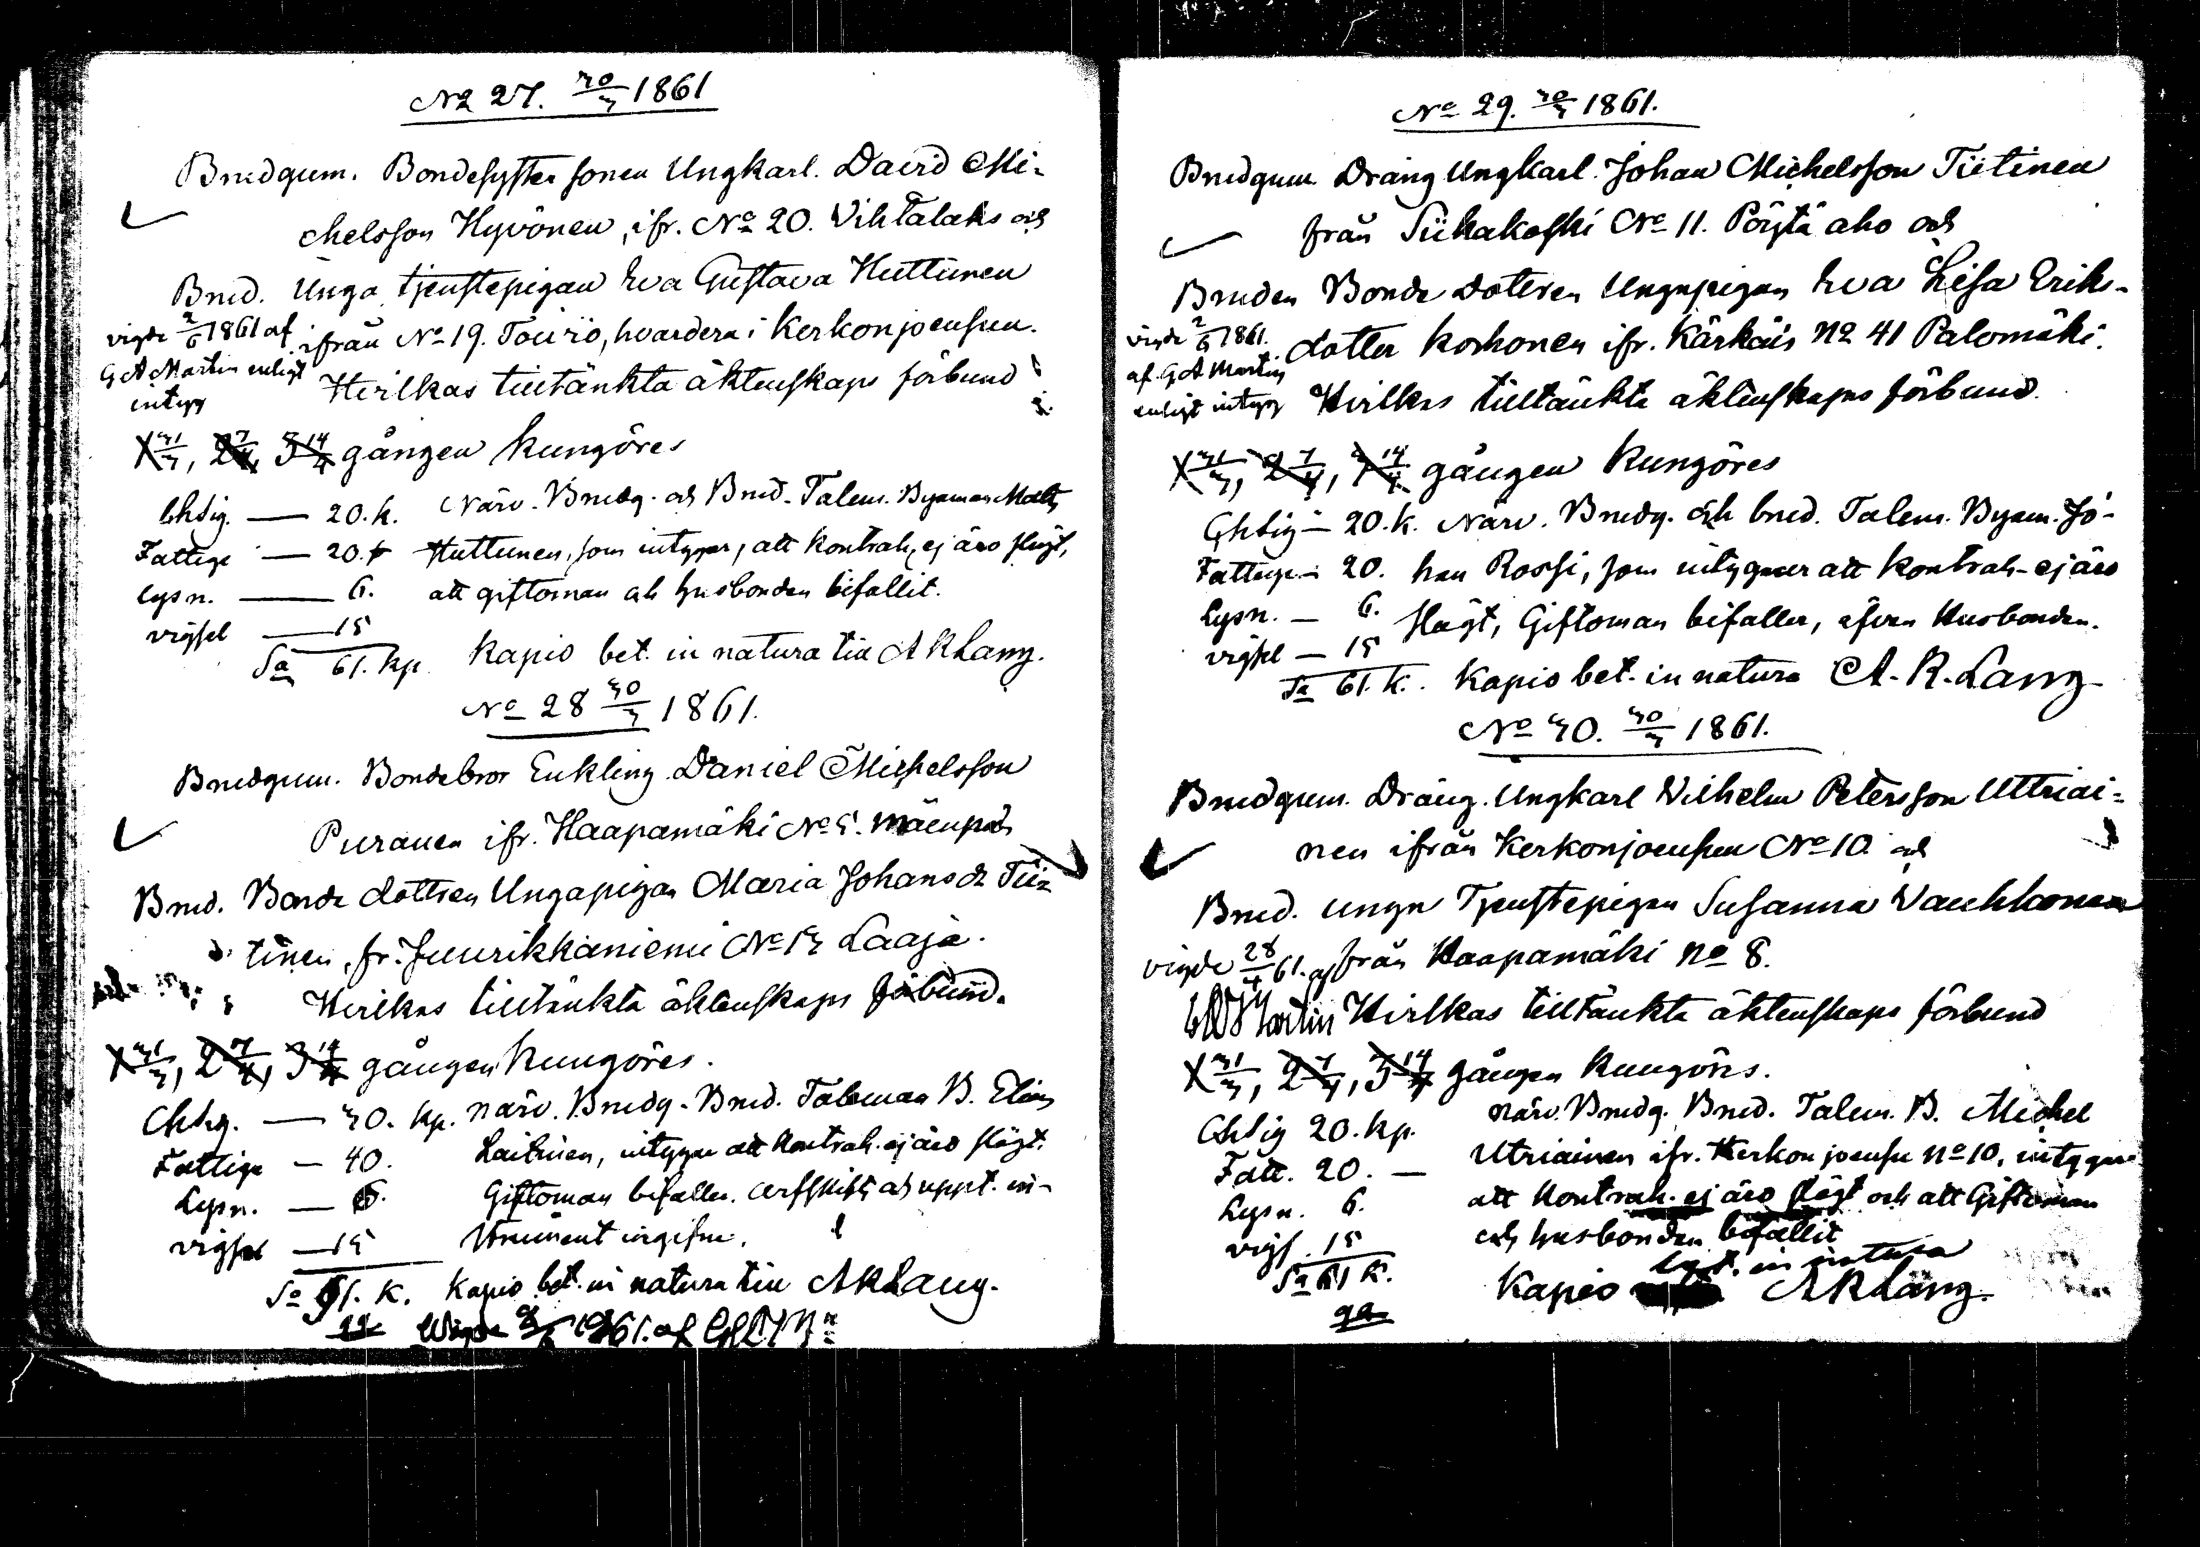 No 27. 30/3 1861
Brudgum. Bondesysterssonen Ungkarl. David Mi-
chelsson Hyvönen, ifr. No 20. Vihtalaks och
Brud. Unga tjenstepigan Eva Gustava Huttunen
vigde 2/6 1861 af ifrån No 19. Touro, hvardera i Kerkonjoensuu.
G A Martin enligt
intyg
Hvilkas tilltänkta äktenskaps förbund
1 31/3, 2 7/4, 3 14/4 gången kungöres
Chtig. — 20. k. Närv. Brudg. och Brud. Talem. Byaman Matts
Fattige — 20. k Huttunen, som intygar, att kontrah. ej äro slägt,
lysn. — 6. att giftoman och husbonden bifallit.
vigsel — 15
Sa 61. kp. Kapio bet. in natura till A R Lang.
No 28 30/3 1861.
Brudgum. Bondebror Enkling Daniel Michelsson
Puranen ifr. Haapamäki No 5.
Brud. Bonde dottren Ungapigan Maria Johansdr Tii-
tinen, fr. Juurikkaniemi No 13 Laaja.
Hvilkas tilltänkta äktenskaps förbund.
1 31/3, 2 7/4, 3 14/4 gången kungöres.
Chtig. — 30. kp. närv. Brudg. Brud. Taleman B. Elias
Fattige — 40. Laitinen, intygar att kontrah. ej äro slägt.
Lysn. — 6. Giftoman bifaller. arfskifte och uppt. in-
vigsel — 15 strument ingifne.
Sa 91. K. Kapio bet. in natura till A R Lang.
Vigde 2/6 1861. af G A M
No 29. 30/3 1861.
Brudgum. Dräng Ungkarl. Johan Michelsson Tiitinen
från Siikakoski No 11. Pöytä aho och
Bruden Bonde dotteren Ungapigan Eva Lisa Eriks-
dotter Korhonen ifr. Kärkäis No 41 Palomäki.
vigde 2/6 1861.
af. G A Martin
enligt intyg Hvilkas tilltänkta äktenskaps förbund.
1 31/3, 2 7/4, 3 14/4 gången kungöres
Chtig — 20. K. Närv. Brudg. och brud. Talem. Byam. Jo-
Fattige — 20. han Rossi, som intygar att kontrah. ej äro
Lysn. — 6. slägt, Giftoman bifaller, äfven Husbonden.
vigsel — 15
Sa 61. K. Kapio bet. in natura A. R. Lang
No 30. 30/3 1861.
Brudgum. Dräng. Ungkarl Wilhelm Petersson Uttriai-
nen ifrån Kerkonjoensuu No 10. och
Brud. unga Tjenstepigan Susanna Vauhkonen
vigde 28/4 61. af från Haapamäki No 8.
G A Martin Hvilkas tilltänkta äktenskaps förbund
1 31/3, 2 7/4, 3 14/4 gången kungöres.
Chtig 20. kp. närv. Brudg. Brud. Talem. B. Michel
Fatt. 20. — Utriainen ifr. Kerkonjoensu No 10, intygar
Lysn. 6. att kontrah. ej äro slägt och att Giftoman
vigs. 15 och husbonden bifallit
Sa 61 K. Kapio bet. in natura A R Lang.